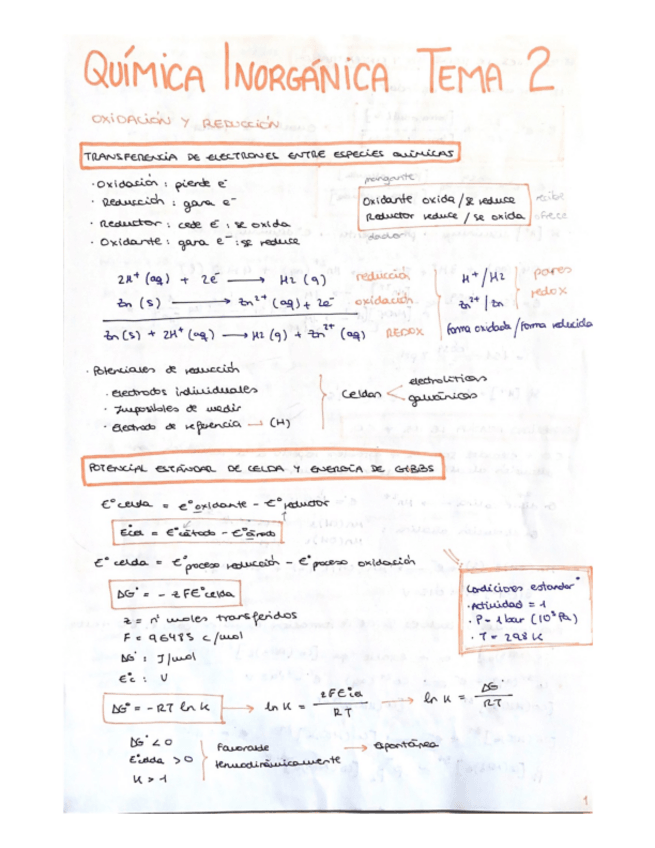 QUÍMICA INORGÁNICA TEMA 2
OXIDACIÓN Y REDUCCIÓN
TRANSFERENCIA DE ELECTRONES ENTRE ESPECIES QUÍMICAS
· Oxidación : pierde e⁻
· Reducción : gana e⁻
· Reductor : cede e⁻ : se oxida
· Oxidante : gana e⁻ : se reduce
Oxidante oxida / se reduce
Reductor reduce / se oxida
2H⁺ (aq) + 2e⁻ → H2 (g) reducción
Zn (s) → Zn²⁺ (aq) + 2e⁻ oxidación
Zn (s) + 2H⁺ (aq) → H2 (g) + Zn²⁺ (aq) REDOX
H⁺/H2
Zn²⁺/Zn
pares
redox
forma oxidada / forma reducida
· Potenciales de reducción
· electrodos individuales
· Imposibles de medir
· electrodo de referencia → (H)
Celdas
electrolíticas
galvánicas
POTENCIAL ESTÁNDAR DE CELDA Y ENERGÍA DE GIBBS
E° celda = E° oxidante - E° reductor
E°cel = E°cátodo - E°ánodo
E° celda = E° proceso reducción - E° proceso oxidación
ΔG° = - zFE°celda
z = nº moles transferidos
F = 96485 c/mol
ΔG° : J/mol
E°c : V
Condiciones estandar °
· Actividad = 1
· P = 1 bar (10⁵ Pa)
· T = 298 K
ΔG° = -RT ln K → ln K = zFE°cel / RT → ln K = ΔG° / RT
ΔG° < 0
E°celda > 0
K > 1
Favorable
termodinámicamente
→ espontánea
1